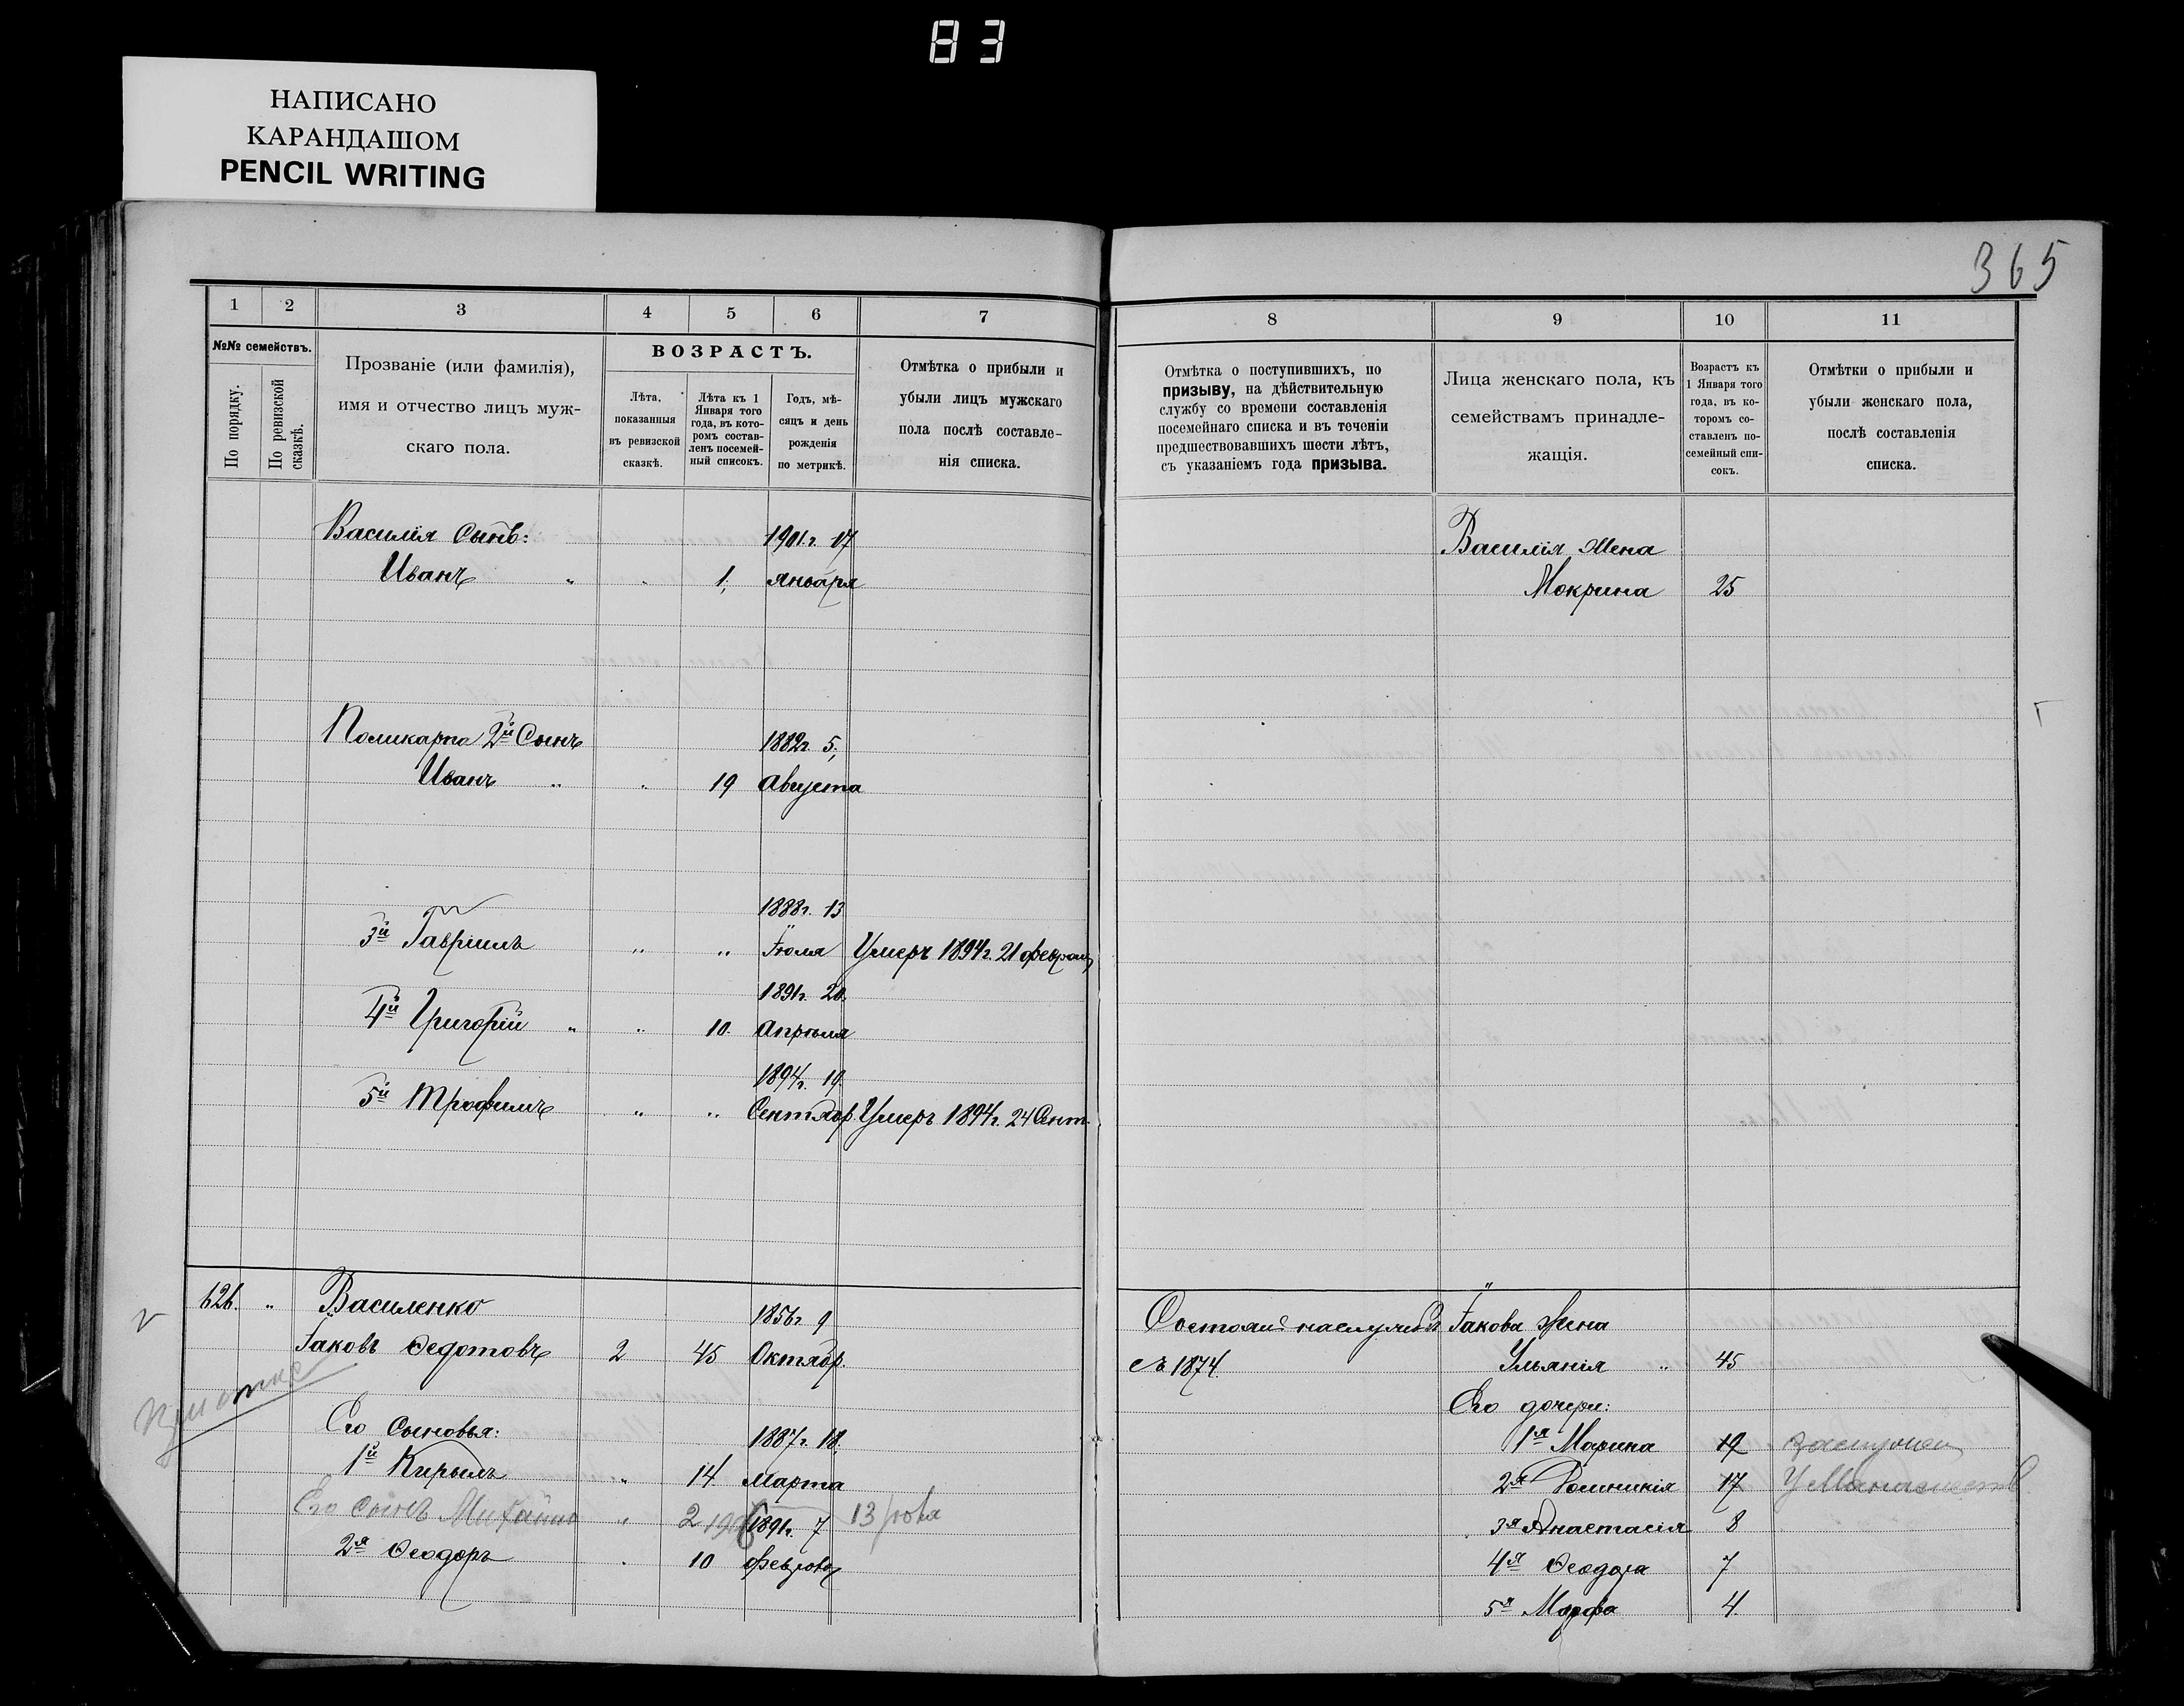 83
НАПИСАНО
КАРАНДАШОМ
PENCIL WRITING
365
1 2 3 4 5 6 7
№№ семействъ.
По порядку.
По ревизской сказкѣ.
Прозваніе (или фамилія),
имя и отчество лицъ муж-
скаго пола.
ВОЗРАСТЪ.
Лѣта,
показанныя
въ ревизской
сказкѣ.
Лѣта къ 1
Января того
года, въ кото-
ромъ состав-
ленъ посемей-
ный списокъ.
Годъ, мѣ-
сяцъ и день
рожденія
по метрикѣ.
Отмѣтка о прибыли и
убыли лицъ мужскаго
пола послѣ составле-
нія списка.
Василія Сынъ: 1901г. 17
Иванъ " " 1, января
Поликарпа 2й Сынъ 1882г. 5,
Иванъ " " 19 Августа
1888г. 13
3й Гавріилъ " " Іюля Умеръ 1894г. 21 феврал
1891г. 20.
4й Григорій " " 10. Апрѣля
1894г. 19.
5й Трофимъ " " Сентябр. Умеръ 1894г. 24 Сент.
626. " Василенко 1856г. 9
Іаковъ Ѳедотовъ 2 45 Октябр.
Его сыновья: 1887г. 18.
1й Кирылъ " 14. Марта
Его сынъ Михаилъ " 2 13
1891г. 7
2я Ѳеодоръ " 10 Феврал
8 9 10 11
Отмѣтка о поступившихъ, по
призыву, на дѣйствительную
службу со времени составленія
посемейнаго списка и въ теченіи
предшествовавшихъ шести лѣтъ,
съ указаніемъ года призыва.
Лица женскаго пола, къ
семействамъ принадле-
жащія.
Возрастъ къ
1 Января того
года, въ ко-
торомъ со-
ставленъ по-
семейный спи-
сокъ.
Отмѣтки о прибыли и
убыли женскаго пола,
послѣ составленія
списка.
Василія Жена
Мокрина 25
Іакова Жена
съ 1874. Ульянія " 45
Его дочери:
1я Марина 19
2я Домникія 17
3я Анастасія 8
4я Ѳеодора 7
5я Марфа 4.